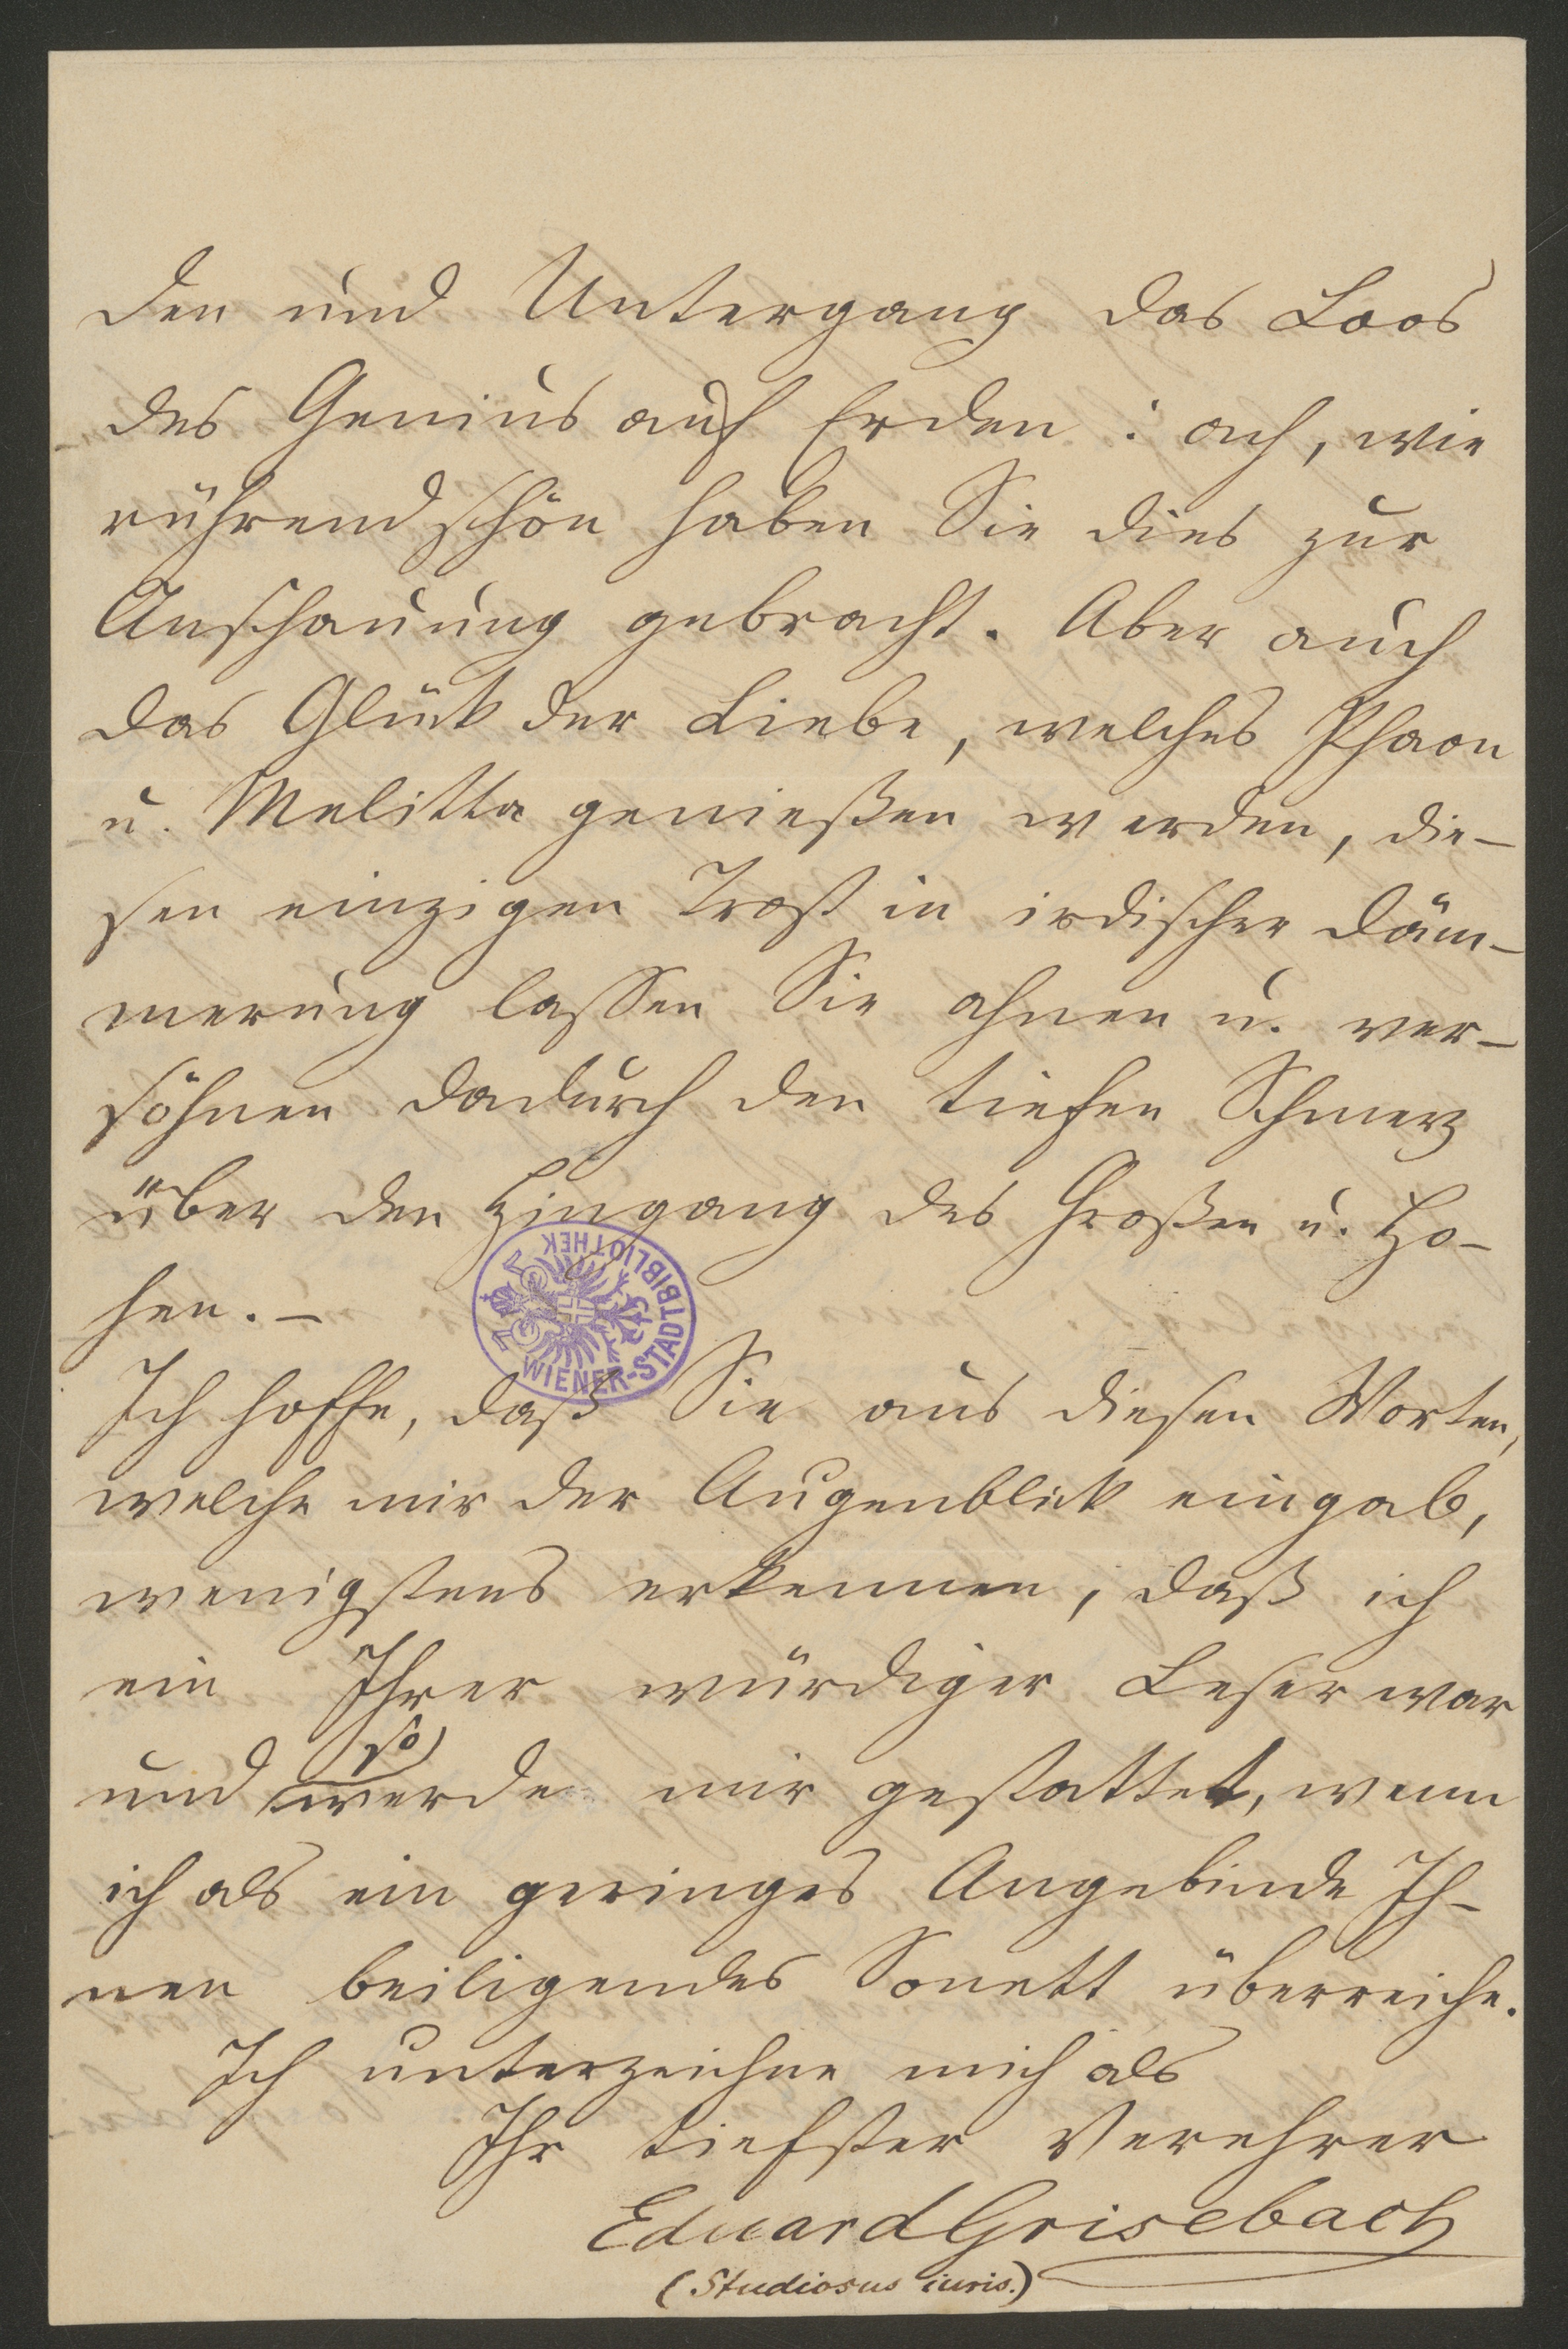 den und Untergang das Loos
des Genius auf Erden: ach, wie
rührend schön haben Sie dies zur
Anschauung gebracht. Aber auch
das Glück der Liebe, welches Phaon
u. Melitta genießen werden, die-
sen einzigen Trost in irdischer Däm-
merung lassen Sie ahnen u. ver-
söhnen dadurch den tiefen Schmerz
über den Hingang des Großen u. Ho-
hen. —
WIENER-STADTBIBLIOTHEK
Ich hoffe, daß Sie aus diesen Worten,
welche mir der Augenblick eingab,
wenigstens erkennen, daß ich
ein Ihrer würdiger Leser war
und so werde mir gestattet, wenn
ich als ein geringes Angebinde Ih-
nen beiligendes Sonett überreiche.
Ich unterzeichne mich als
Ihr tiefster Verehrer
Eduard Grisebach
(Studiosus iuris.)